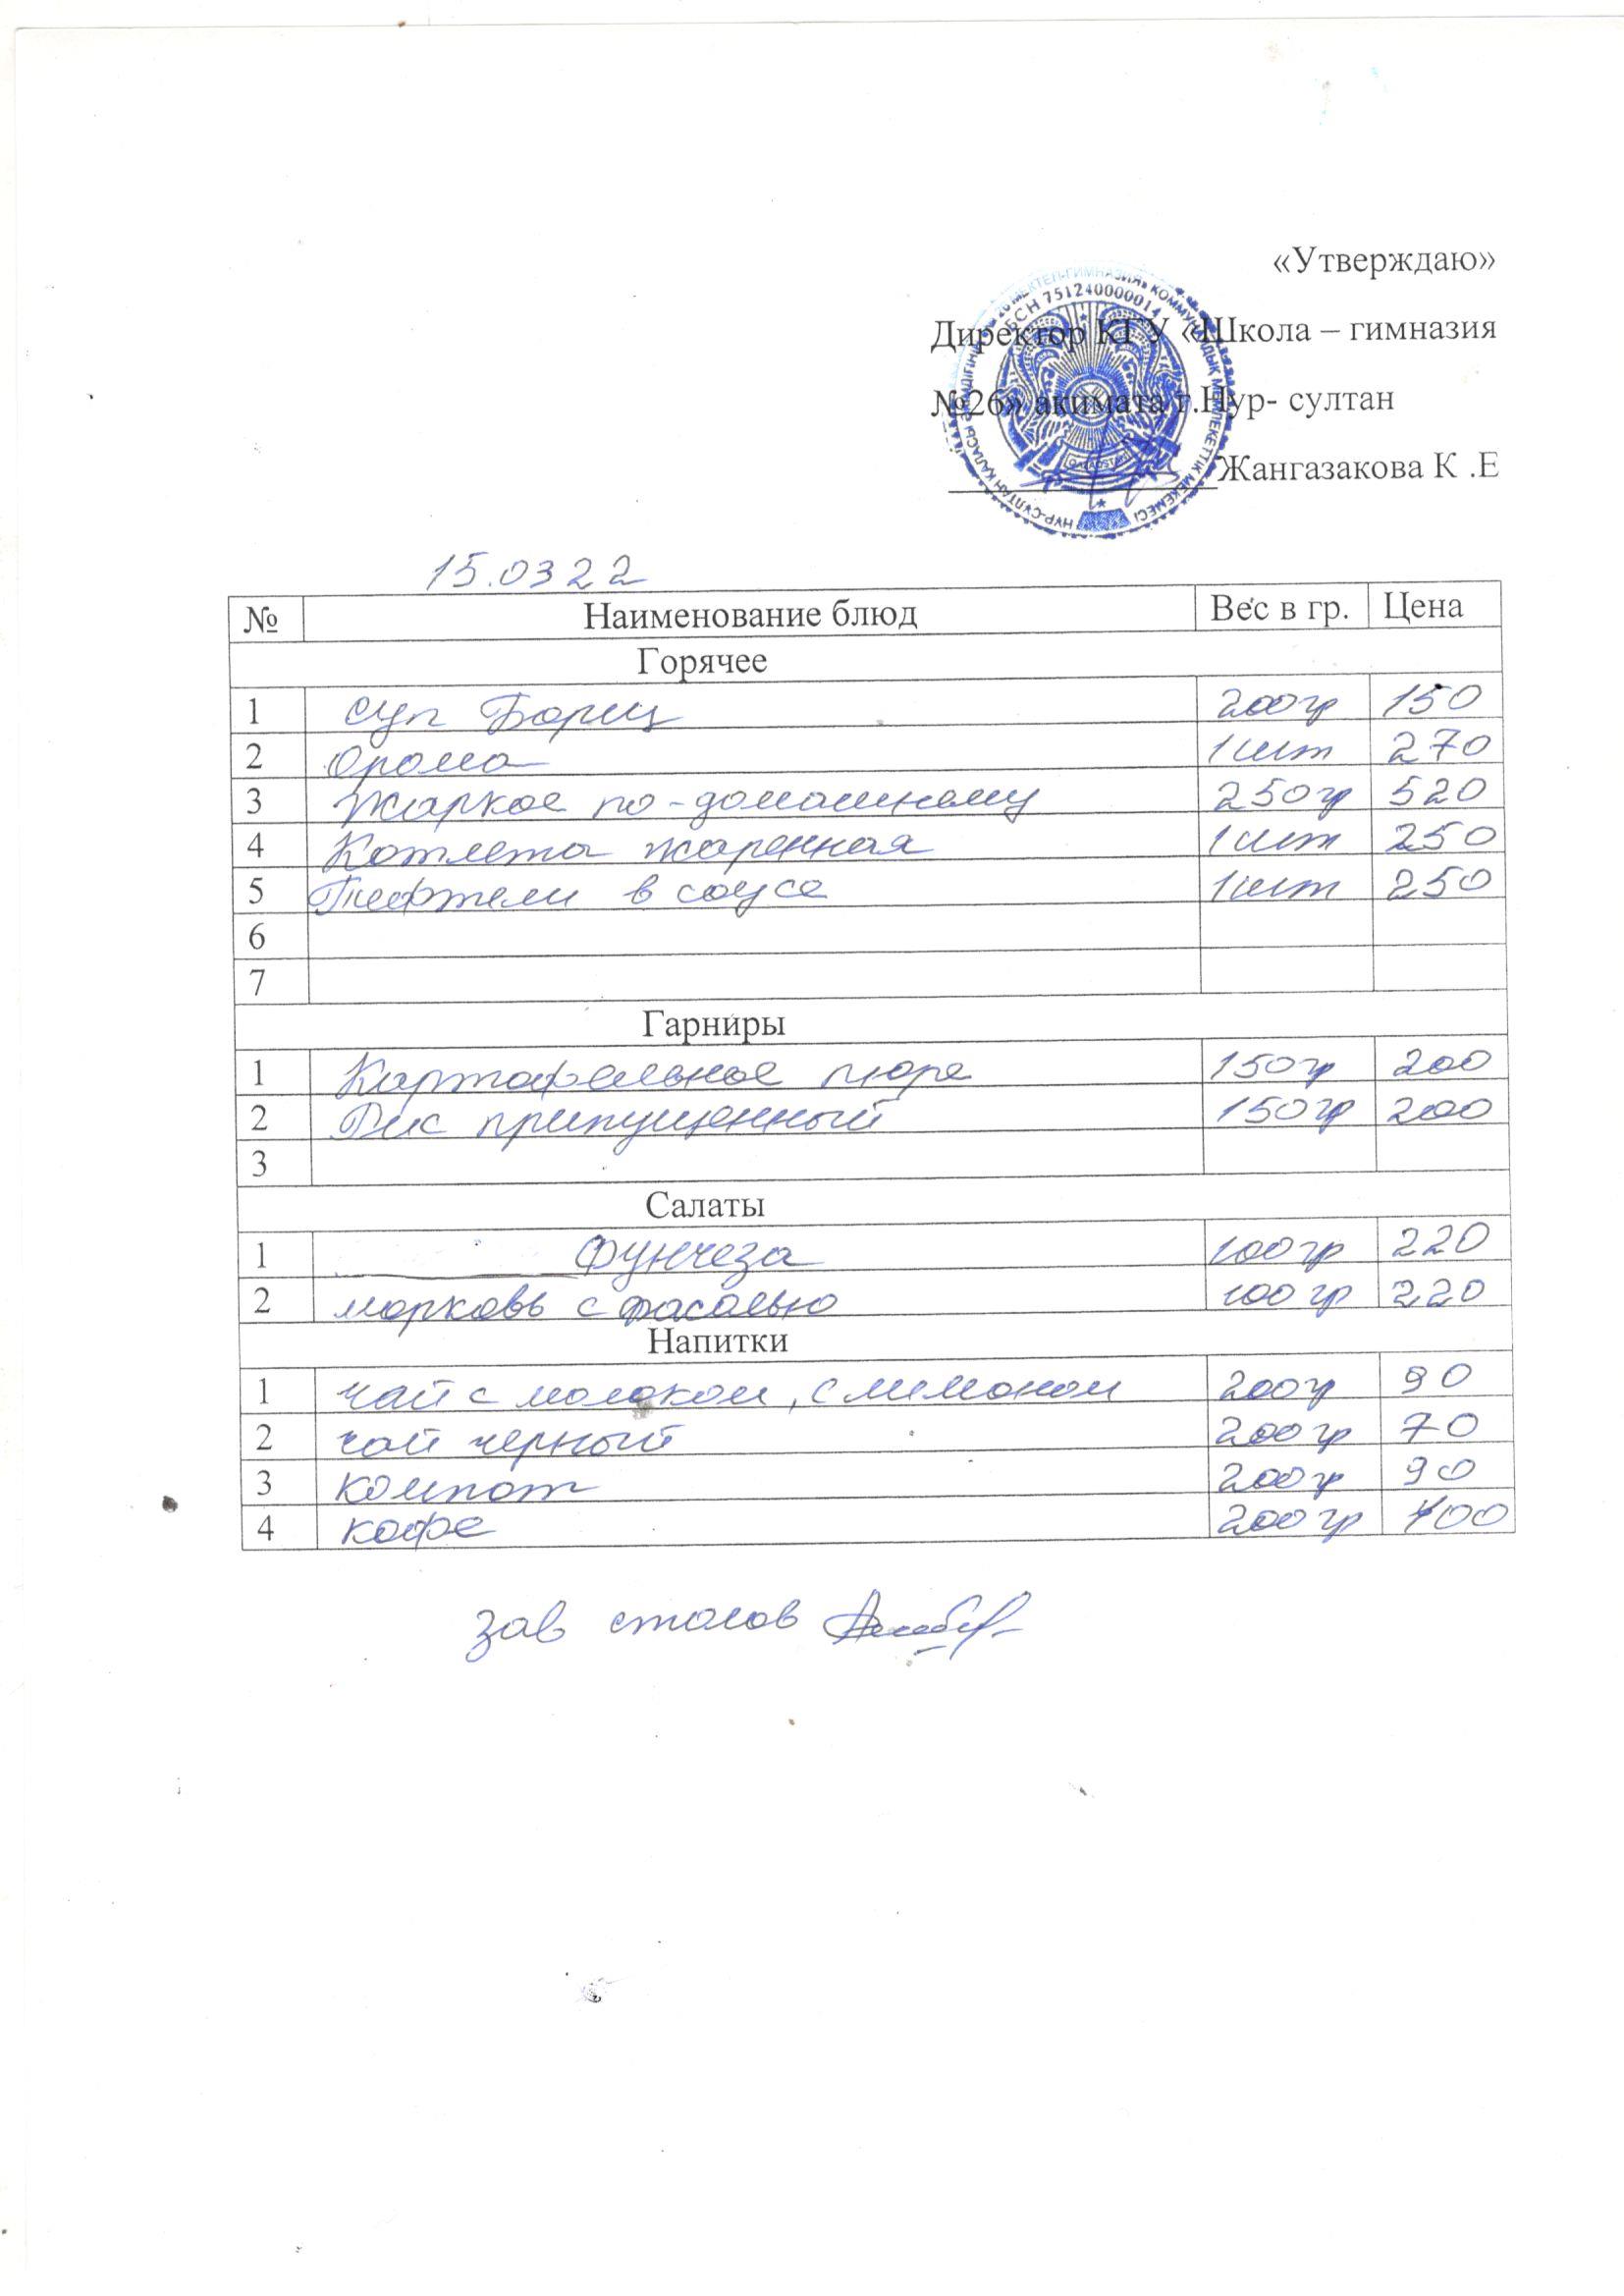 «Утверждаю»
Директор КГУ «Школа – гимназия
№26» акимата г.Нур- султан
Жангазакова К .Е
БСН 751240000014
НҰР-СҰЛТАН ҚАЛАСЫ ӘКІМДІГІНІҢ МЕКТЕП-ГИМНАЗИЯ» КОММУНАЛДЫҚ МЕМЛЕКЕТТІК МЕКЕМЕСІ
15.03 22
№ Наименование блюд Вес в гр. Цена
Горячее
1 суп Борщ 200гр 150
2 Орома 1шт 270
3 Жаркое по-домашнему 250гр 520
4 Котлета жаренная 1шт 250
5 Тефтели в соусе 1шт 250
6
7
Гарниры
1 Картофельное пюре 150гр 200
2 Рис припущенный 150гр 200
3
Салаты
1 Фунчеза 100гр 220
2 морковь с фасолью 100 гр 220
Напитки
1 чай с молоком, с лимоном 200гр 90
2 чай черный 200гр 70
3 компот 200гр 90
4 кофе 200 гр 100
зав столов